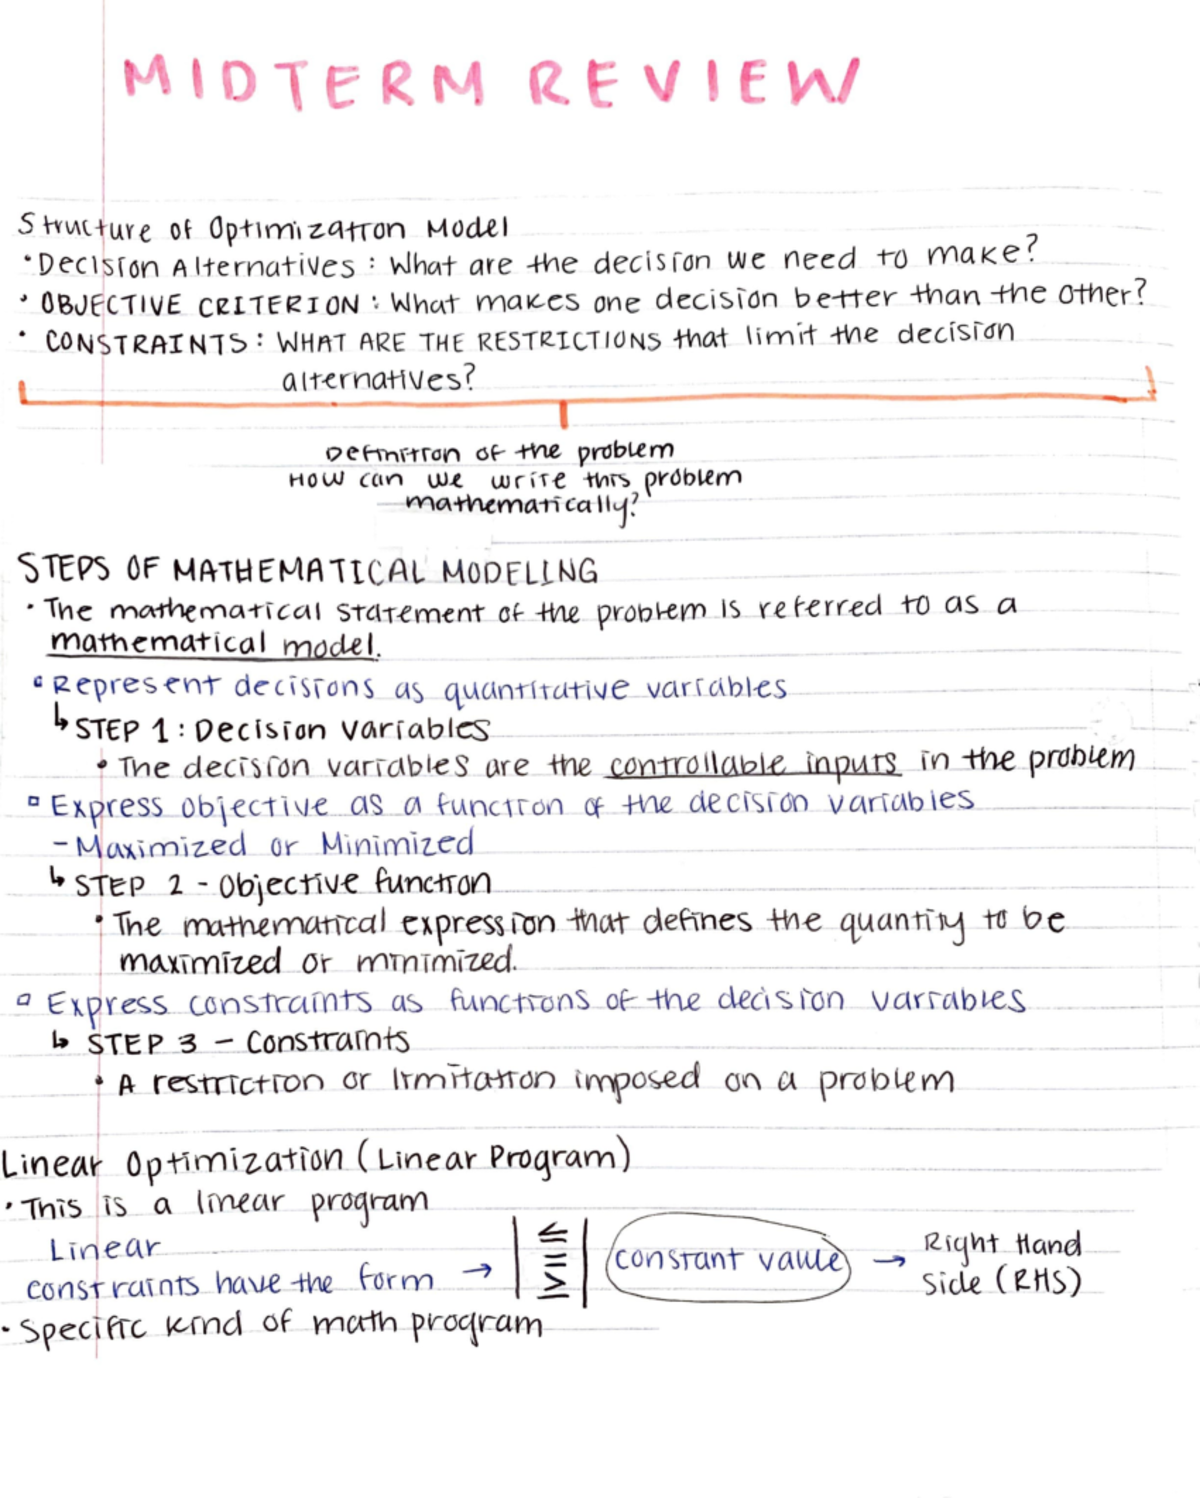 MIDTERM REVIEW
Structure of Optimization Model
• Decision Alternatives : What are the decision we need to make?
• OBJECTIVE CRITERION : What makes one decision better than the other?
• CONSTRAINTS : WHAT ARE THE RESTRICTIONS that limit the decision
alternatives?
Definition of the problem
How can we write this problem
mathematically?
STEPS OF MATHEMATICAL MODELING
• The mathematical statement of the problem is referred to as a
mathematical model.
▫ Represent decisions as quantitative variables
↳ STEP 1 : Decision variables
• The decision variables are the controllable inputs in the problem
▫ Express objective as a function of the decision variables
- Maximized or Minimized
↳ STEP 2 - Objective function
• The mathematical expression that defines the quantity to be
maximized or minimized.
▫ Express constraints as functions of the decision variables
↳ STEP 3 - Constraints
• A restriction or limitation imposed on a problem
Linear Optimization (Linear Program)
• This is a linear program
Linear
constraints have the form → | ≤ = ≥ | constant value → Right Hand
Side (RHS)
• Specific kind of math program